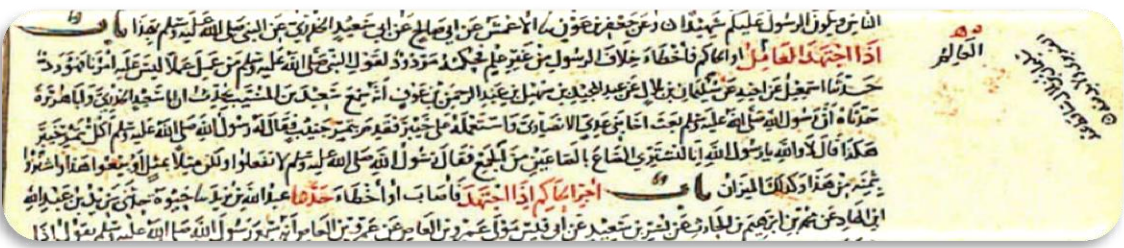 الناس ويكون الرسول عليكم شهيدا وعن جعفر بن عون نا الاعمش عن ابي صالح عن ابي سعيد الخدري عن النبي صلى الله عليه وسلم بهذا باب
اذا اجتهد العامل او الحاكم فاخطاء خلاف الرسول من غير علم فحكمه مردود لقول النبي صلى الله عليه وسلم من عمل عملا ليس عليه امرنا فهو رد
حدثنا اسمعيل عن اخيه عن سليمان بن بلال عن عبد المجيد بن سهيل بن عبد الرحمن بن عوف انه سمع سعيد بن المسيب يحدث ان ابا سعيد الخدري وابا هريرة
حدثاه ان رسول الله صلى الله عليه وسلم بعث اخا بني عدي الانصاري واستعمله على خيبر فقدم بتمر جنيب فقال له رسول الله صلى الله عليه وسلم اكل تمر خيبر
هكذا قال لا والله يا رسول الله انا لنشتري الصاع بالصاعين من الجمع فقال رسول الله صلى الله عليه وسلم لا تفعلوا ولكن مثلا بمثل او بيعوا هذا واشتروا
بثمنه من هذا وكذلك الميزان باب اجر الحاكم اذا اجتهد فاصاب او اخطاء حدثنا عبد الله بن يزيد نا حيوة حدثني يزيد بن عبد الله
ابن الهاد عن محمد بن ابرهيم بن الحارث عن بسر بن سعيد عن ابي قيس مولى عمرو بن العاص عن عمرو بن العاص انه سمع رسول الله صلى الله عليه وسلم يقول اذا
العالم